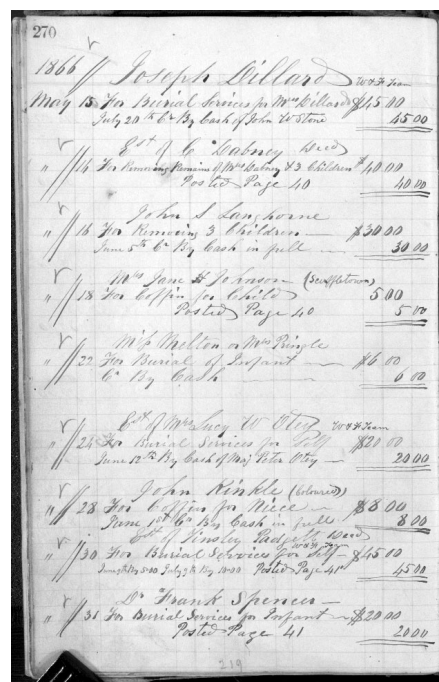 270
1866 // Joseph Dillard W & H Team
May 15 For Burial Services for Mrs Dillard $45 00
July 20th Cr By Cash of John W Stone 45 00
Est of C Dabney Decd
" // 14 For Removing Remains of Mrs Dabney & 3 Children $40 00
Posted Page 40 40 00
John S Langhorne
" // 16 For Removing 3 Children $30 00
June 5th Cr By Cash in full 30 00
Mrs Jane H Johnson (Scuffletown)
" // 18 For Coffin for Child 5 00
Posted Page 40 5 00
Melton or Mrs Pringle
" // 22 For Burial of Infant $6 00
Cr By Cash 6 00
Est of Mrs Lucy W Otey W & H Team
" // 24 For Burial Services for Self $20 00
June 12th By Cash of Maj Peter Otey 20 00
John Kinkle (Coloured)
" // 28 For Coffin for Niece $8 00
June 1st Cr By Cash in full 8 00
Est of Tinsley Padgett Decd
W & H Team
" // 30 For Burial Services for Self $45 00
By 5.00 July 9th By 10.00 Posted Page 45 45 00
Dr Frank Spencer
" // 31 For Burial Services for Infant $20 00
Posted Page 41 20 00
219